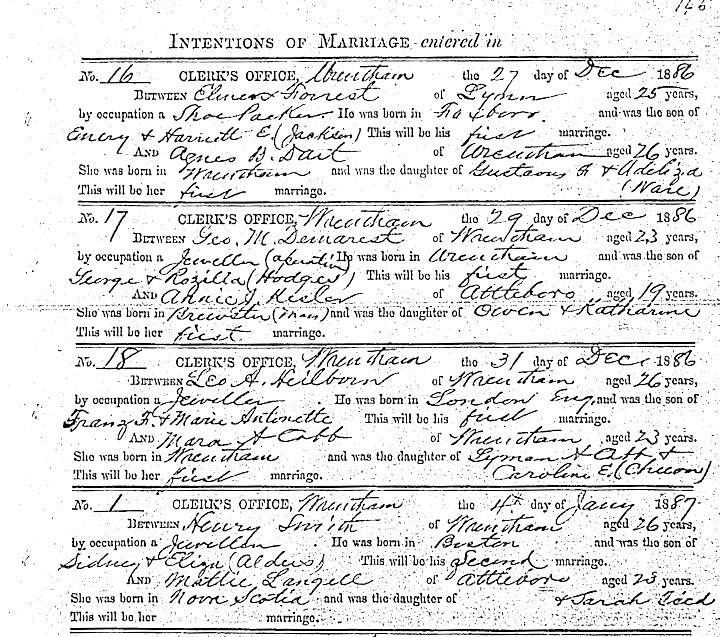 INTENTIONS OF MARRIAGE entered in
No. 16 CLERK'S OFFICE, Wrentham the 27 day of Dec 1886
BETWEEN Elmer Forrest of Lynn aged 25 years,
by occupation a Shoe Packer He was born in Foxboro. and was the son of
Emery & Harriett E. (Jackson) This will be his first marriage.
AND Agnes B. Dart of Wrentham aged 26 years.
She was born in Wrentham and was the daughter of Gustavus A & Adeliza
This will be her first marriage. (Ware)
No. 17 CLERK'S OFFICE, Wrentham the 29 day of Dec 1886
BETWEEN Geo. M. Demarest of Wrentham aged 23 years,
by occupation a Jeweller (operative) He was born in Wrentham and was the son of
George & Rozilla (Hodges) This will be his first marriage.
AND Annie J. Kesler of Attleboro aged 19 years.
She was born in Brewster (Mass) and was the daughter of Owen & Katharine
This will be her first marriage.
No. 18 CLERK'S OFFICE, Wrentham the 31 day of Dec 1886
BETWEEN Leo A. Heilborn of Wrentham aged 26 years,
by occupation a Jeweller. He was born in London Eng, and was the son of
Franz F. & Marie Antonette This will be his first marriage.
AND Mara A Cobb of Wrentham aged 23 years.
She was born in Wrentham and was the daughter of Lyman &
This will be her first marriage. Caroline E.
No. 1 CLERK'S OFFICE, Wrentham the 4th day of Jany 1887
BETWEEN Henry Smith of Wrentham aged 26 years,
by occupation a Jeweller He was born in Boston and was the son of
Sidney & Eliza (Alders) This will be his Second marriage.
AND Mattie Langell of Attleboro aged 23 years.
She was born in Nova Scotia and was the daughter of & Sarah Teed
This will be her marriage.